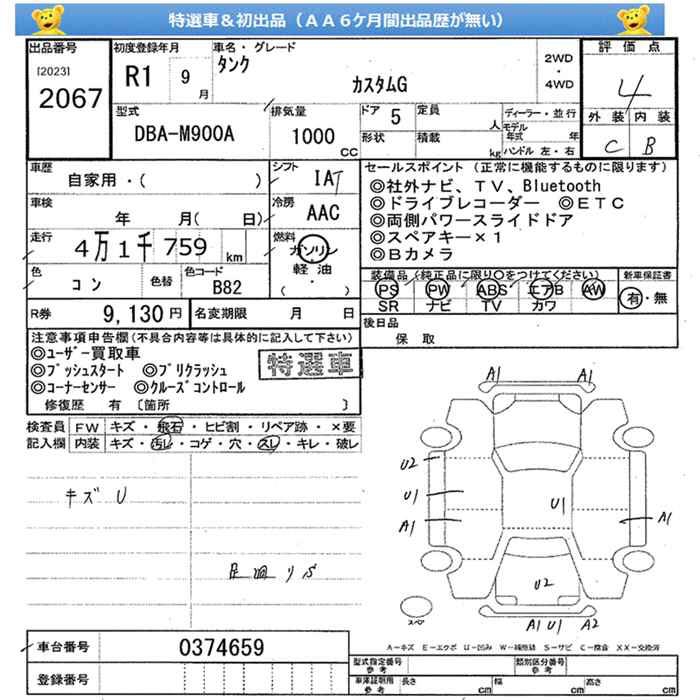 特選車＆初出品（ＡＡ６ケ月間出品歴が無い）
出品番号
[2023]
2067
初度登録年月
R1 9 月
車名・グレード
タンク
カスタムG
2WD
・
4WD
評価点
4
外装 内装
C B
型式
DBA-M900A
排気量
1000 CC
ドア 5
定員 人
形状
積載 kg
ディーラー・並行
モデル年式 年
ハンドル 左・右
車歴
自家用・( )
シフト
IAT
車検
年 月( 日)
冷房
AAC
走行
4万1千759 km
燃料
ガソリン
軽油
( ・ )
色
コン
色替
色コード
B82
R券 9,130円
名変期限 月 日
セールスポイント（正常に機能するものに限ります）
◎社外ナビ、ＴＶ、Bluetooth
◎ドライブレコーダー ◎ＥＴＣ
◎両側パワースライドドア
◎スペアキー×１
◎Ｂカメラ
装備品(純正品に限り○をつけてください)
PS PW ABS エアB AW
SR ナビ TV カワ
新車保証書
有・無
後日品
保 取
注意事項申告欄(不具合内容等は具体的に記入して下さい)
◎ユーザー買取車
◎プッシュスタート ◎プリクラッシュ
◎コーナーセンサー ◎クルーズコントロール
特選車
修復歴 有〔箇所 〕
検査員記入欄
FW キズ・飛石・ヒビ割・リペア跡・×要
内装 キズ・汚レ・コゲ・穴・スレ・キレ・破レ
キズ U
足廻りS
A1 A1
U2
U1
A1
U1
A1
U2
A1 U1 A2
スペア
A－キズ E－エクボ U－凹み W－補修跡 S－サビ C－腐食 XX－交換済
車台番号
0374659
登録番号
型式指定番号
参考
類別区分番号
参考
車庫証明用
参考
長さ cm
幅 cm
高さ cm